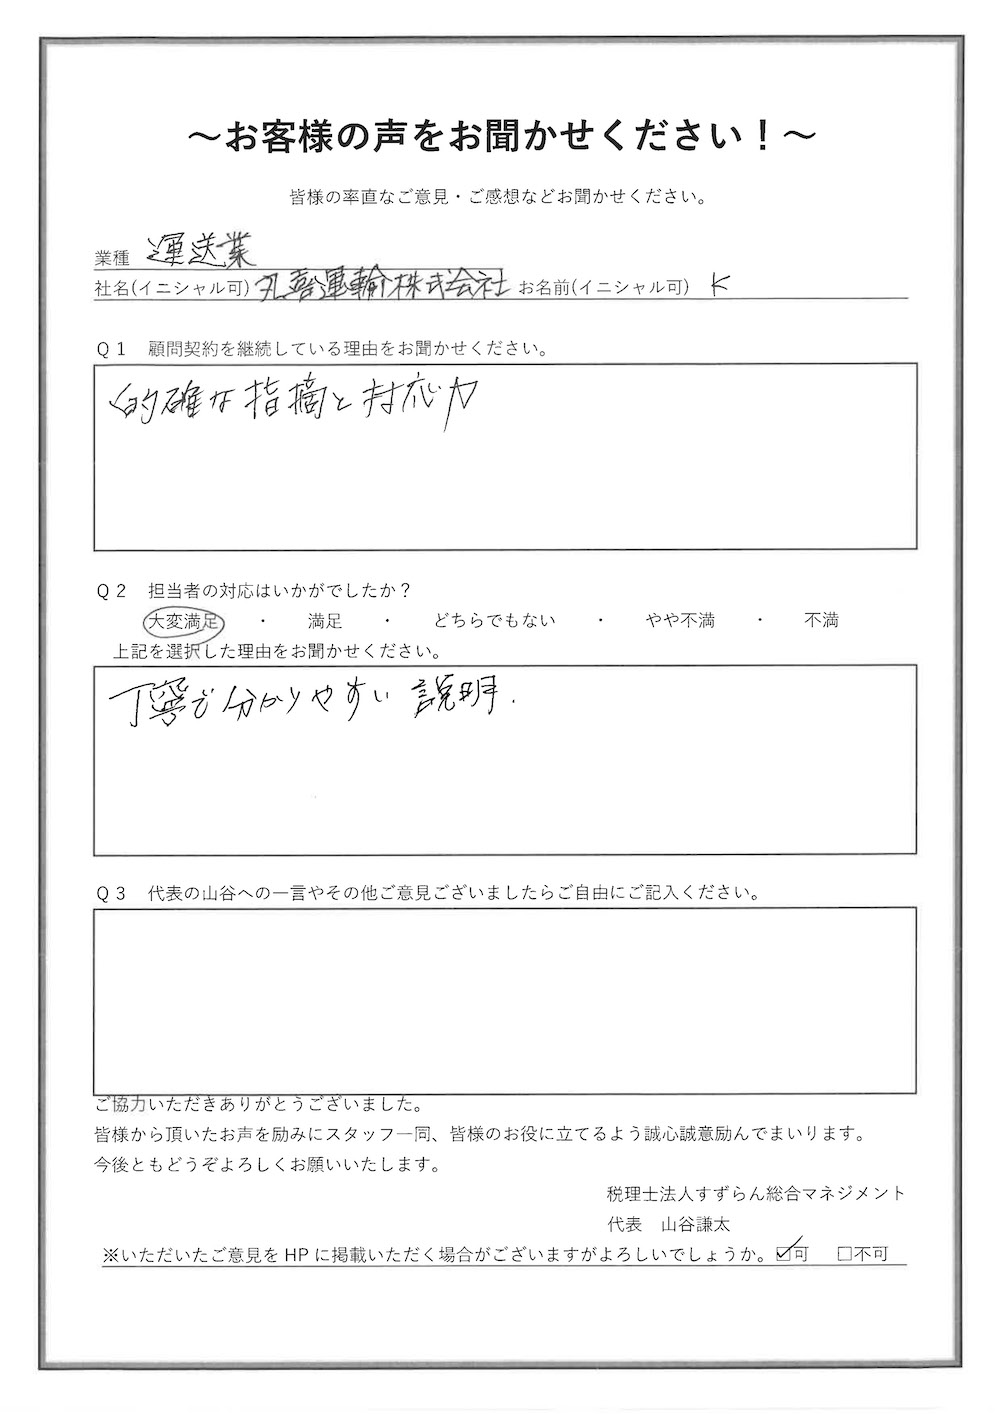 ～お客様の声をお聞かせください！～
皆様の率直なご意見・ご感想などお聞かせください。
業種 運送業
社名(イニシャル可) 丸喜運輸株式会社 お名前(イニシャル可) K
Q1 顧問契約を継続している理由をお聞かせください。
的確な指摘と対応力
Q2 担当者の対応はいかがでしたか？
大変満足 ・ 満足 ・ どちらでもない ・ やや不満 ・ 不満
上記を選択した理由をお聞かせください。
丁寧で分かりやすい説明.
Q3 代表の山谷への一言やその他ご意見ございましたらご自由にご記入ください。
ご協力いただきありがとうございました。
皆様から頂いたお声を励みにスタッフ一同、皆様のお役に立てるよう誠心誠意励んでまいります。
今後ともどうぞよろしくお願いいたします。
税理士法人すずらん総合マネジメント
代表 山谷謙太
※いただいたご意見を HP に掲載いただく場合がございますがよろしいでしょうか。☑可 □不可